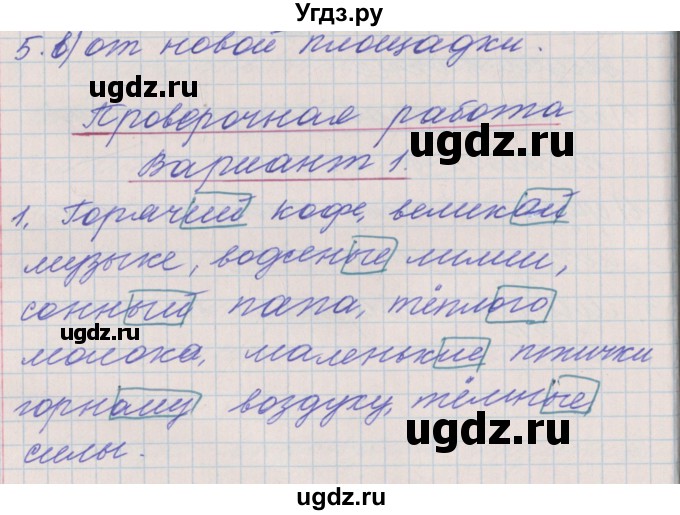 Угдз.ру
5. в) от новой площадки.
ugdz.ru ugdz.ru
Проверочная работа
ugdz.ru
Вариант 1.
1. Горячий кофе, великой
музыке, водяные лилии,
сонный папа, тёплого
ugdz.ru
молока, маленькие птички
горному воздуху, тёмные
ugdz.ru
силы.
ugdz.ru